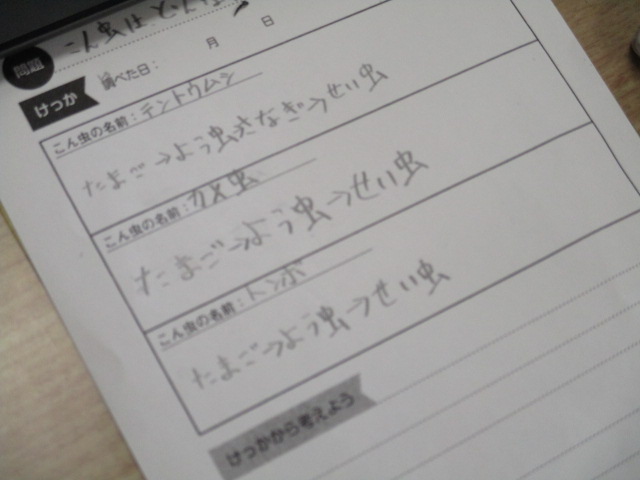 問題
こん虫は
けっか
調べた日： 月 日
こん虫の名前：テントウムシ
たまご→よう虫さなぎ→せい虫
こん虫の名前：カメ虫
たまご→よう虫→せい虫
こん虫の名前：トンボ
たまご→よう虫→せい虫
けっかから考えよう